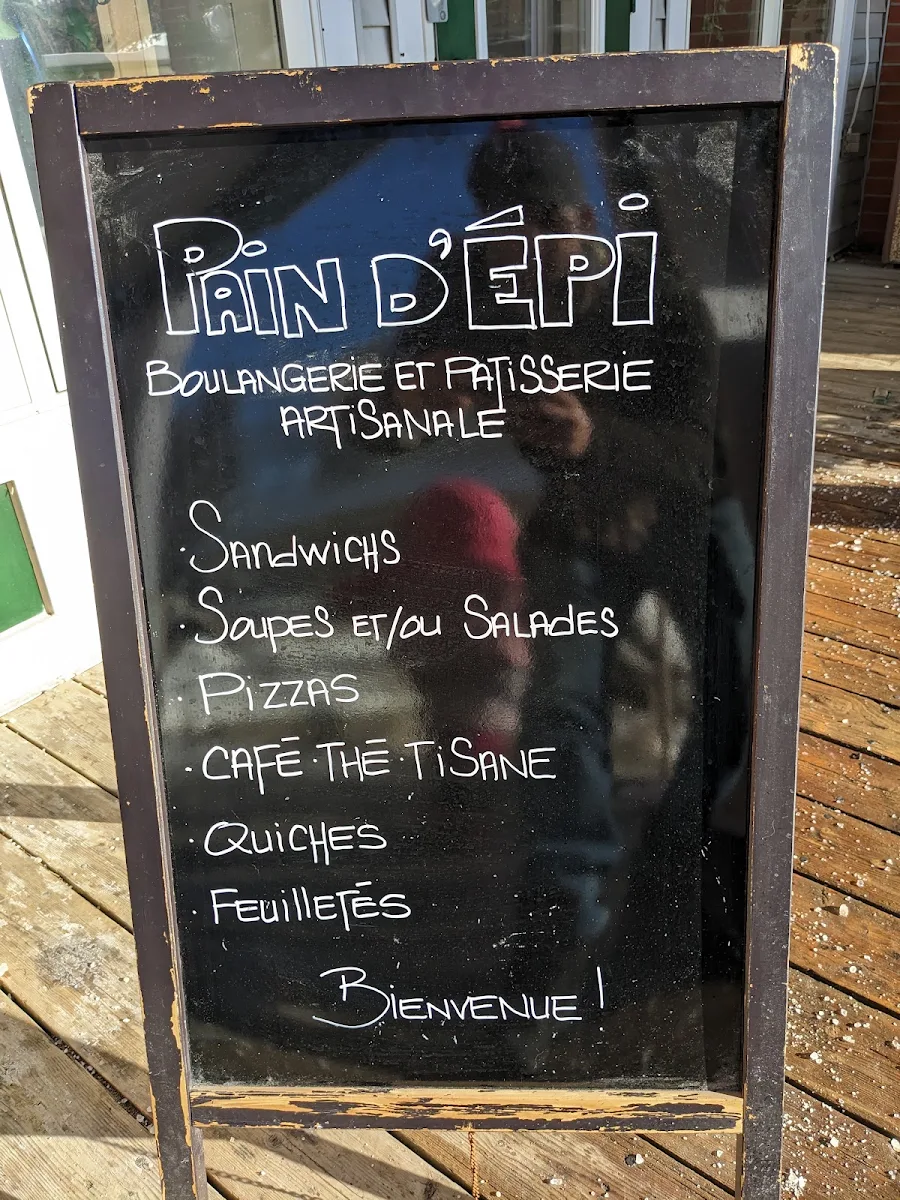 PAIN D'ÉPI
BOULANGERIE ET PATISSERIE
ARTISANALE
· SANDWICHS
· SOUPES ET/OU SALADES
· PIZZAS
· CAFÉ · THÉ · TISANE
· QUICHES
· FEUILLETÉS
BIENVENUE !